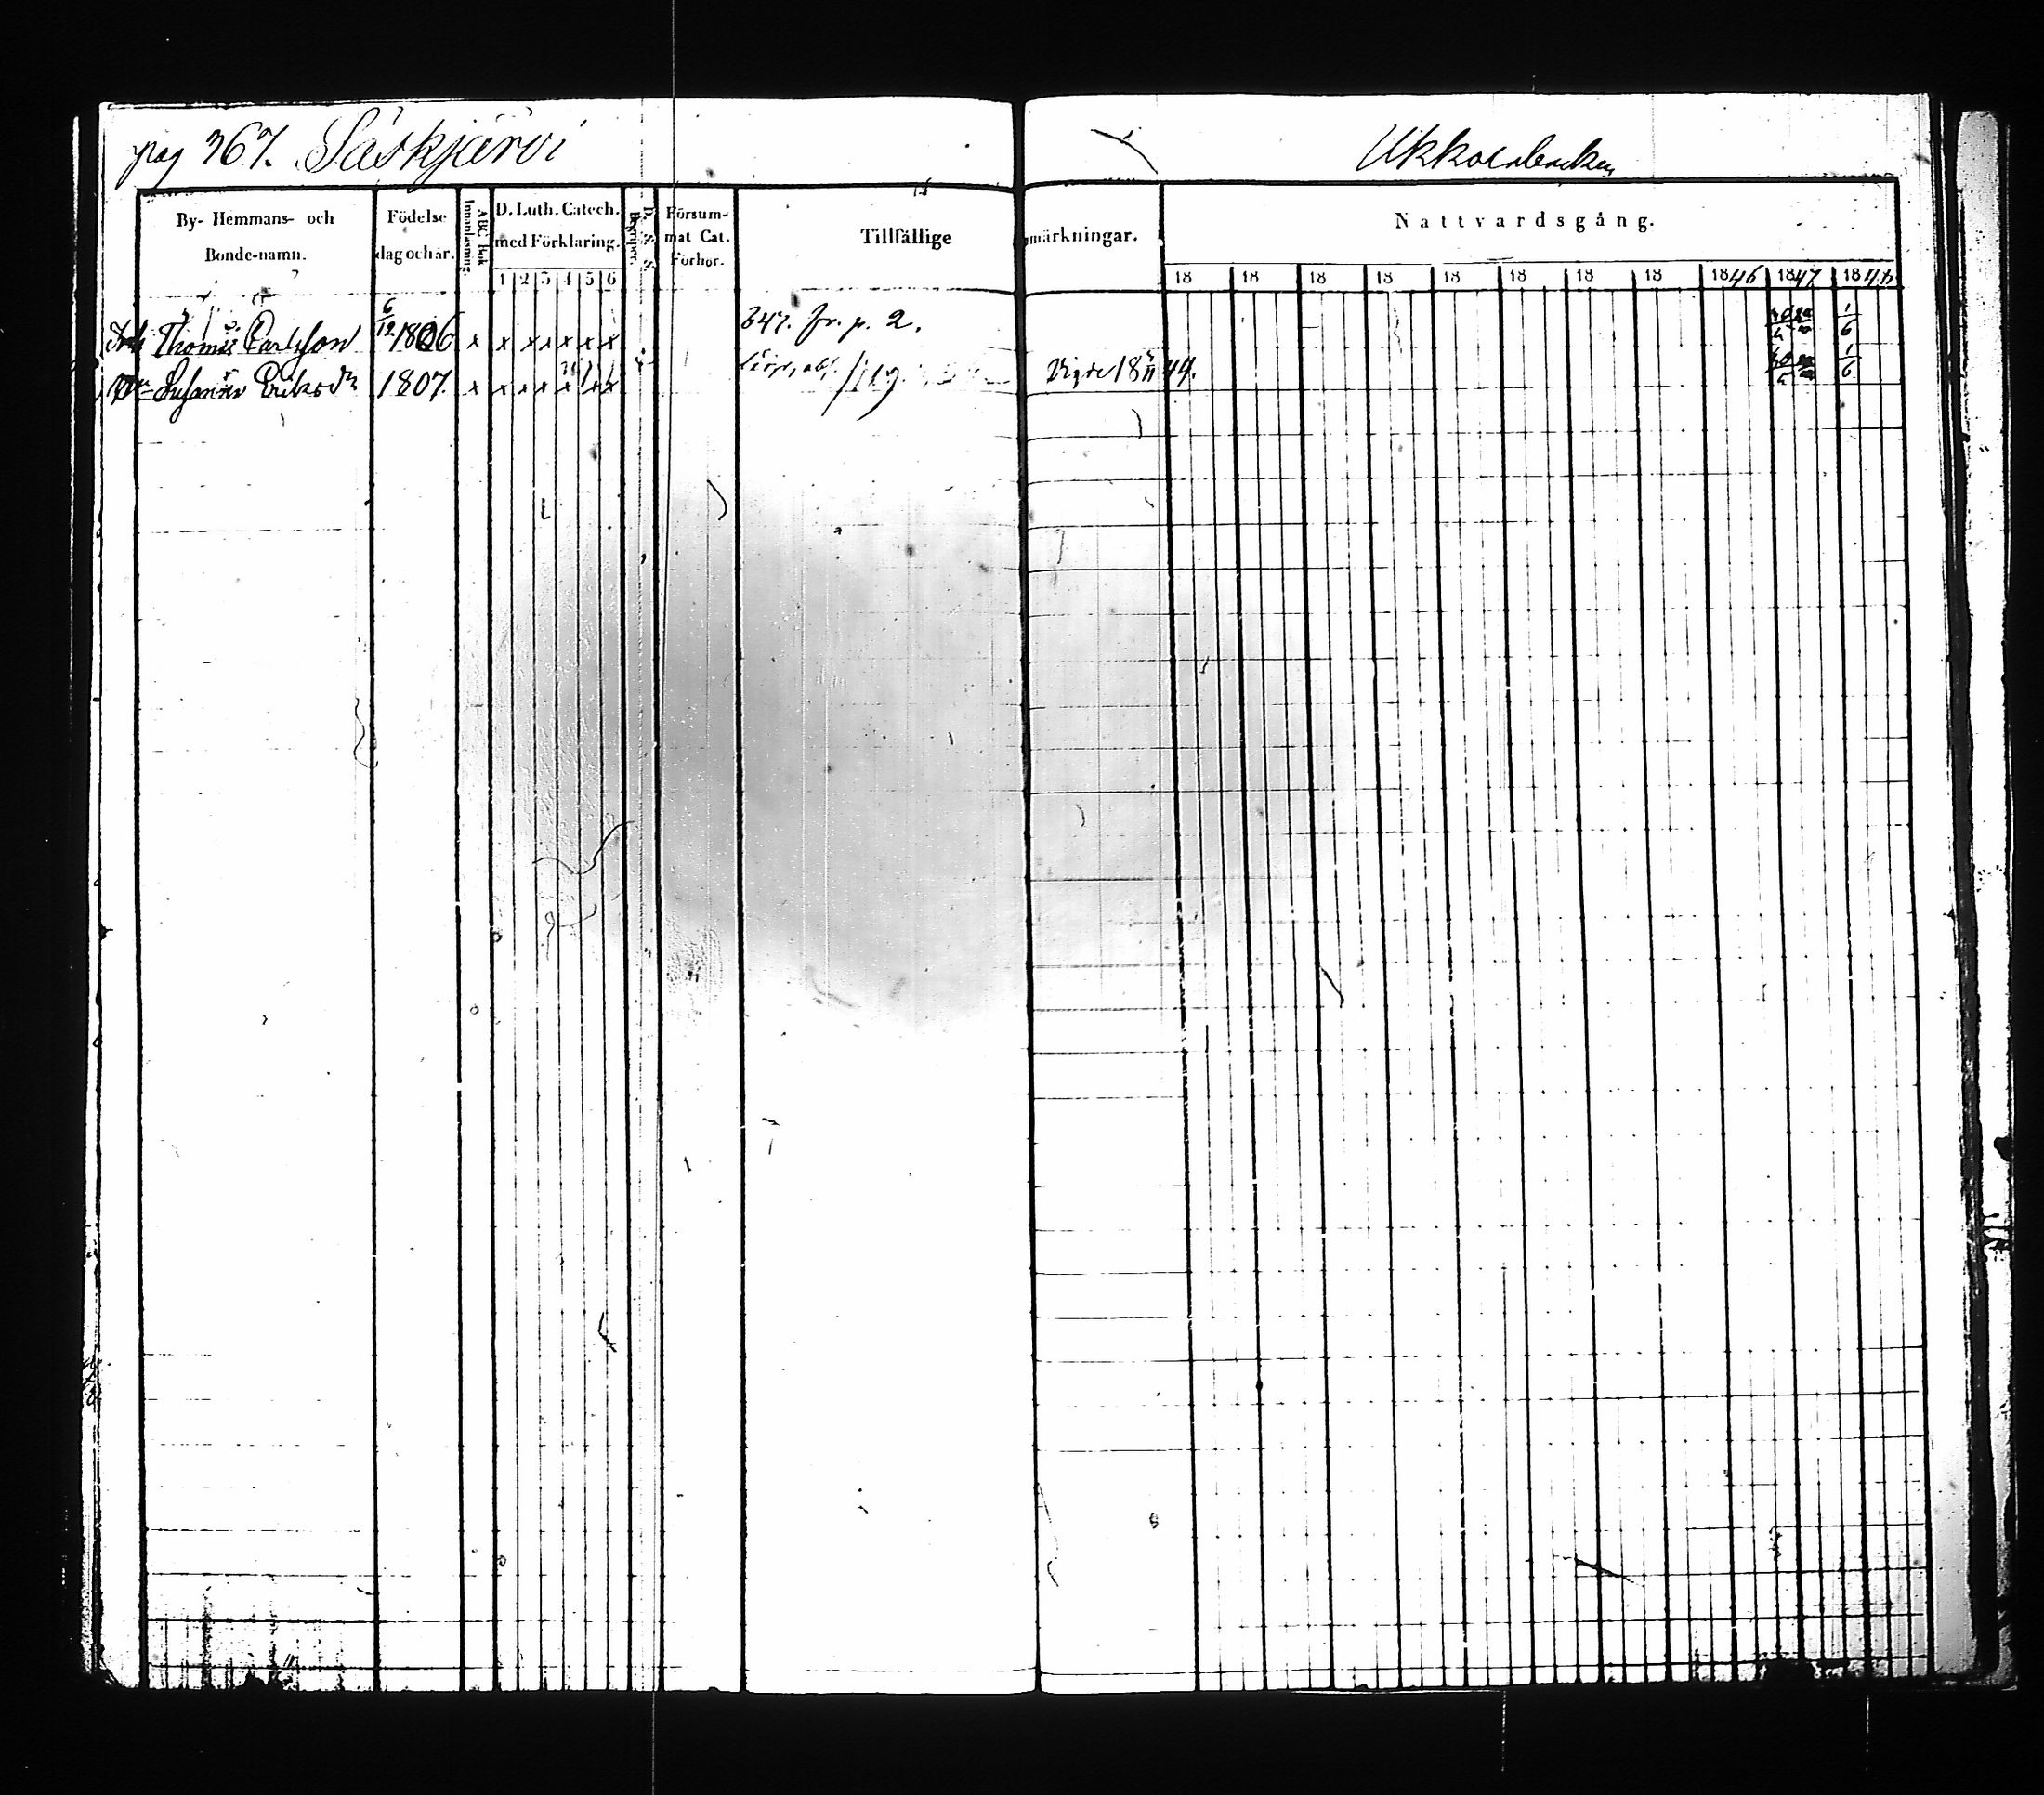 pag 367. Säskjärvi
By- Hemmans- och Bonde-namn.
Födelse dag och år.
ABC Bok Innanläsning.
D. Luth. Catech. med Förklaring.
1 2 3 4 5 6
D. S. S. Begriper.
Försum- mat Cat. Förhör.
Tillfällige märkningar.
Nattvardsgång.
18 18 18 18 18 18 18 18 1846 1847 1848
Thomas Carlsson 6/12 1806 x x x x x x x 347. fr. p. 2. 1/6
Susanna Eriksd:r 1807. x x x x x x x Vigde 18 11 44. 1/6